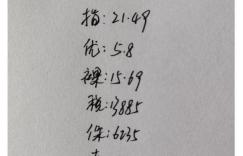 指:21.49
优:5.8
裸:15.69
税:13885
保:6235